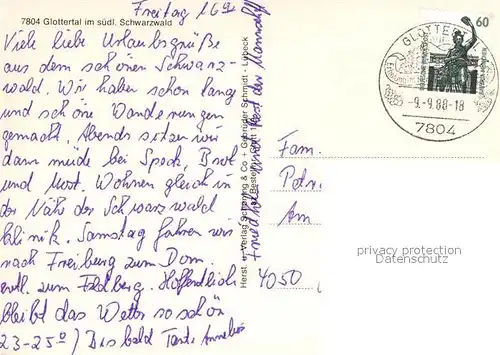 Freitag 16⁰⁰
7804 Glottertal im südl. Schwarzwald
Viele liebe Urlaubsgrüße
aus dem schönen Schwarz-
wald. Wir haben schon lang
und schöne Wanderungen
gemacht. Abends sitzen wir
dann müde bei Speck, Brot
und Most. Wohnen gleich in
der Nähe der Schwarzwald
klinik. Samstag fahren wir
nach Freiburg zum Dom.
evtl. zum Feldberg. Hoffentlich
bleibt das Wetter so schön
23-25°) Bis bald Tante Annelies
und Rest der Mannschaft
Herst. u. Verlag Schöning & Co + Gebrüder Schmidt - Lübeck
GLOTTERT
60
-9.-9.88-18
7804
Fam.
Petr.
Am
4050
privacy protection
Datenschutz